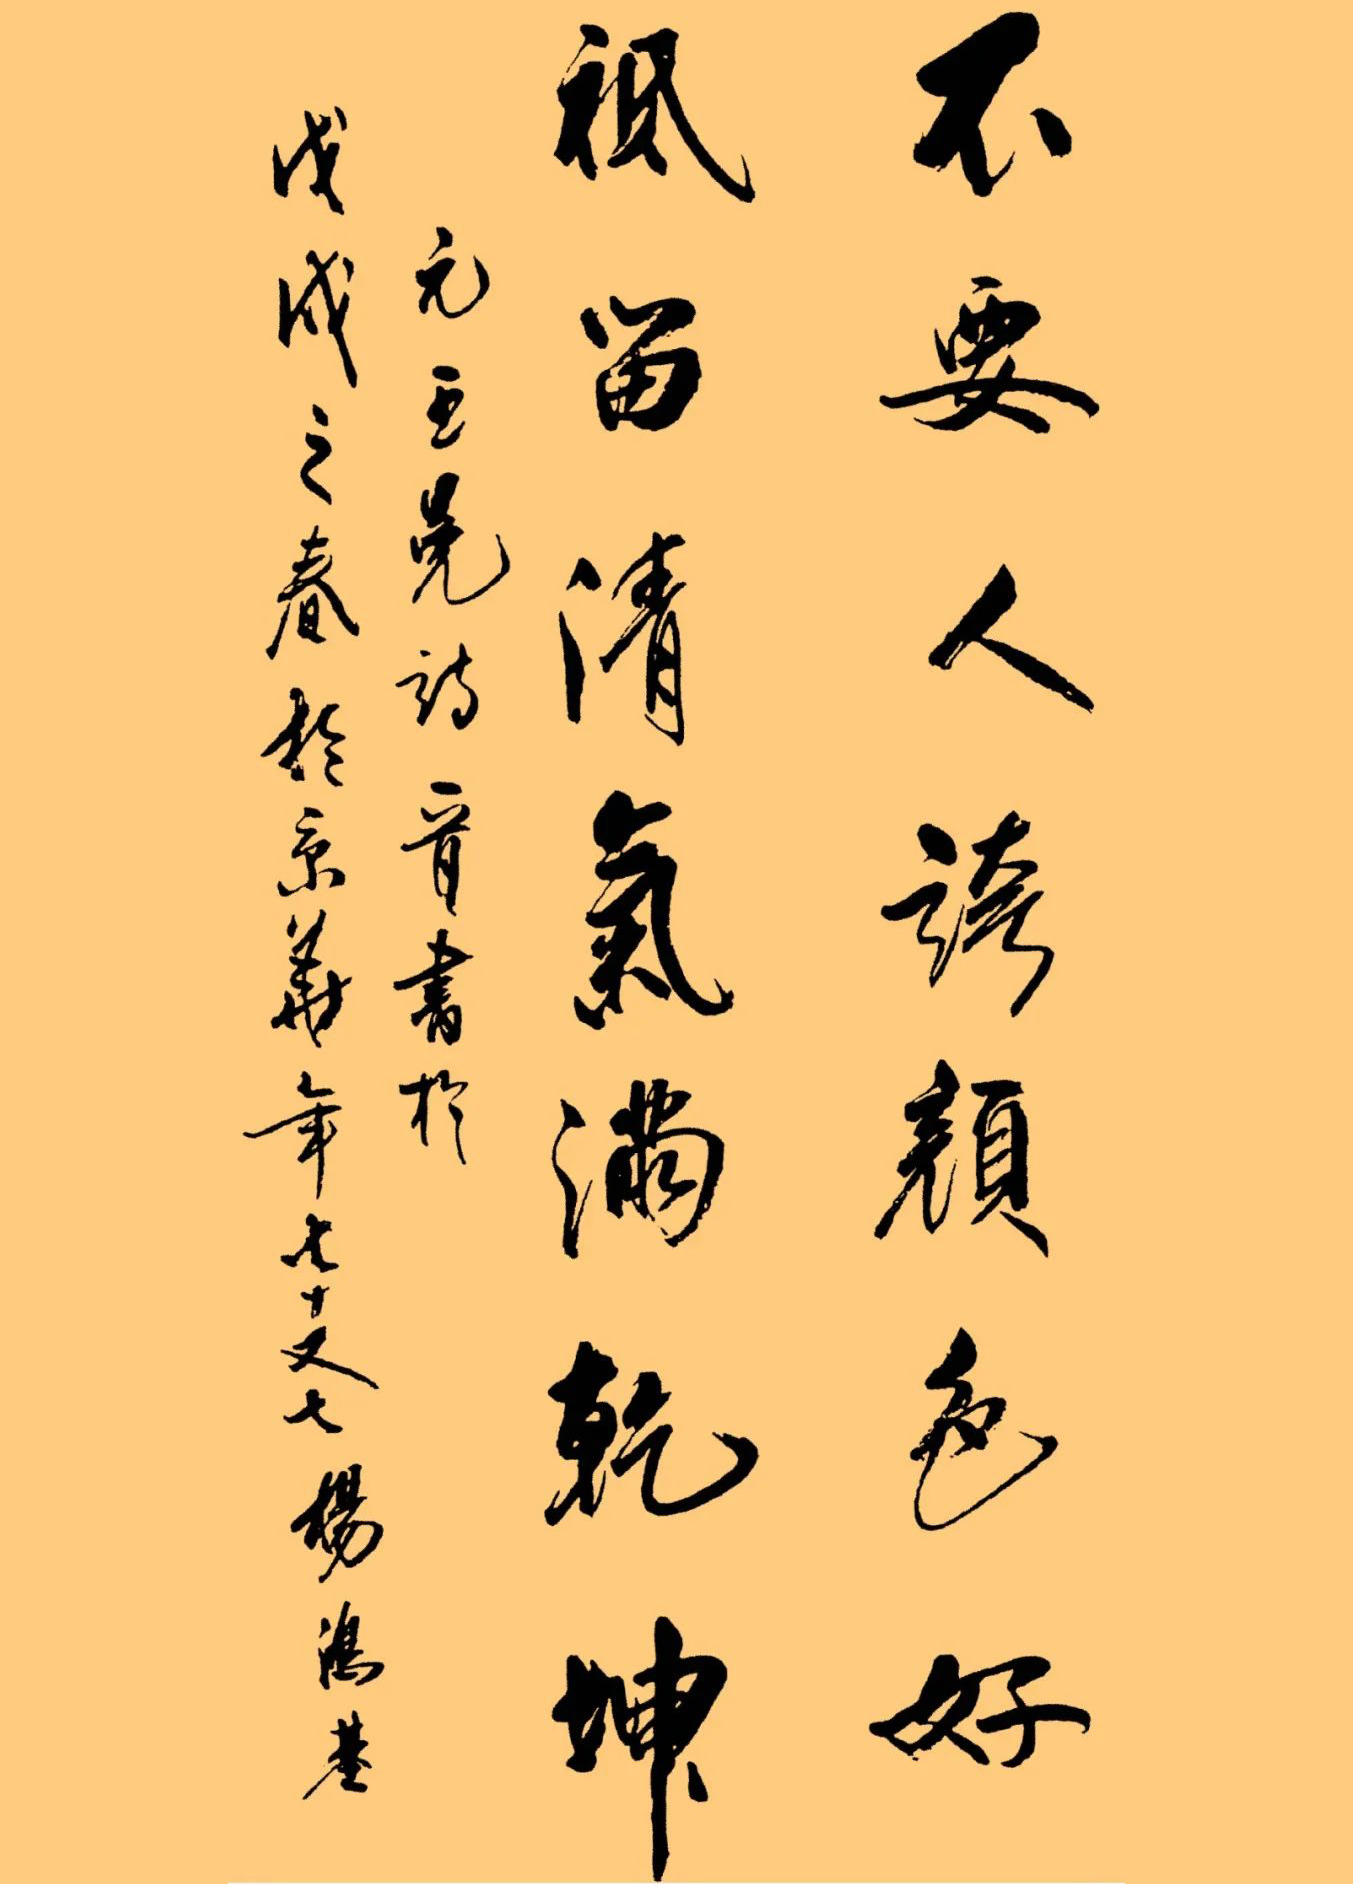 不要人誇顏色好
祇留清氣滿乾坤
元王冕詩一首書於
戊戌之春於京華年七十又七楊鴻基